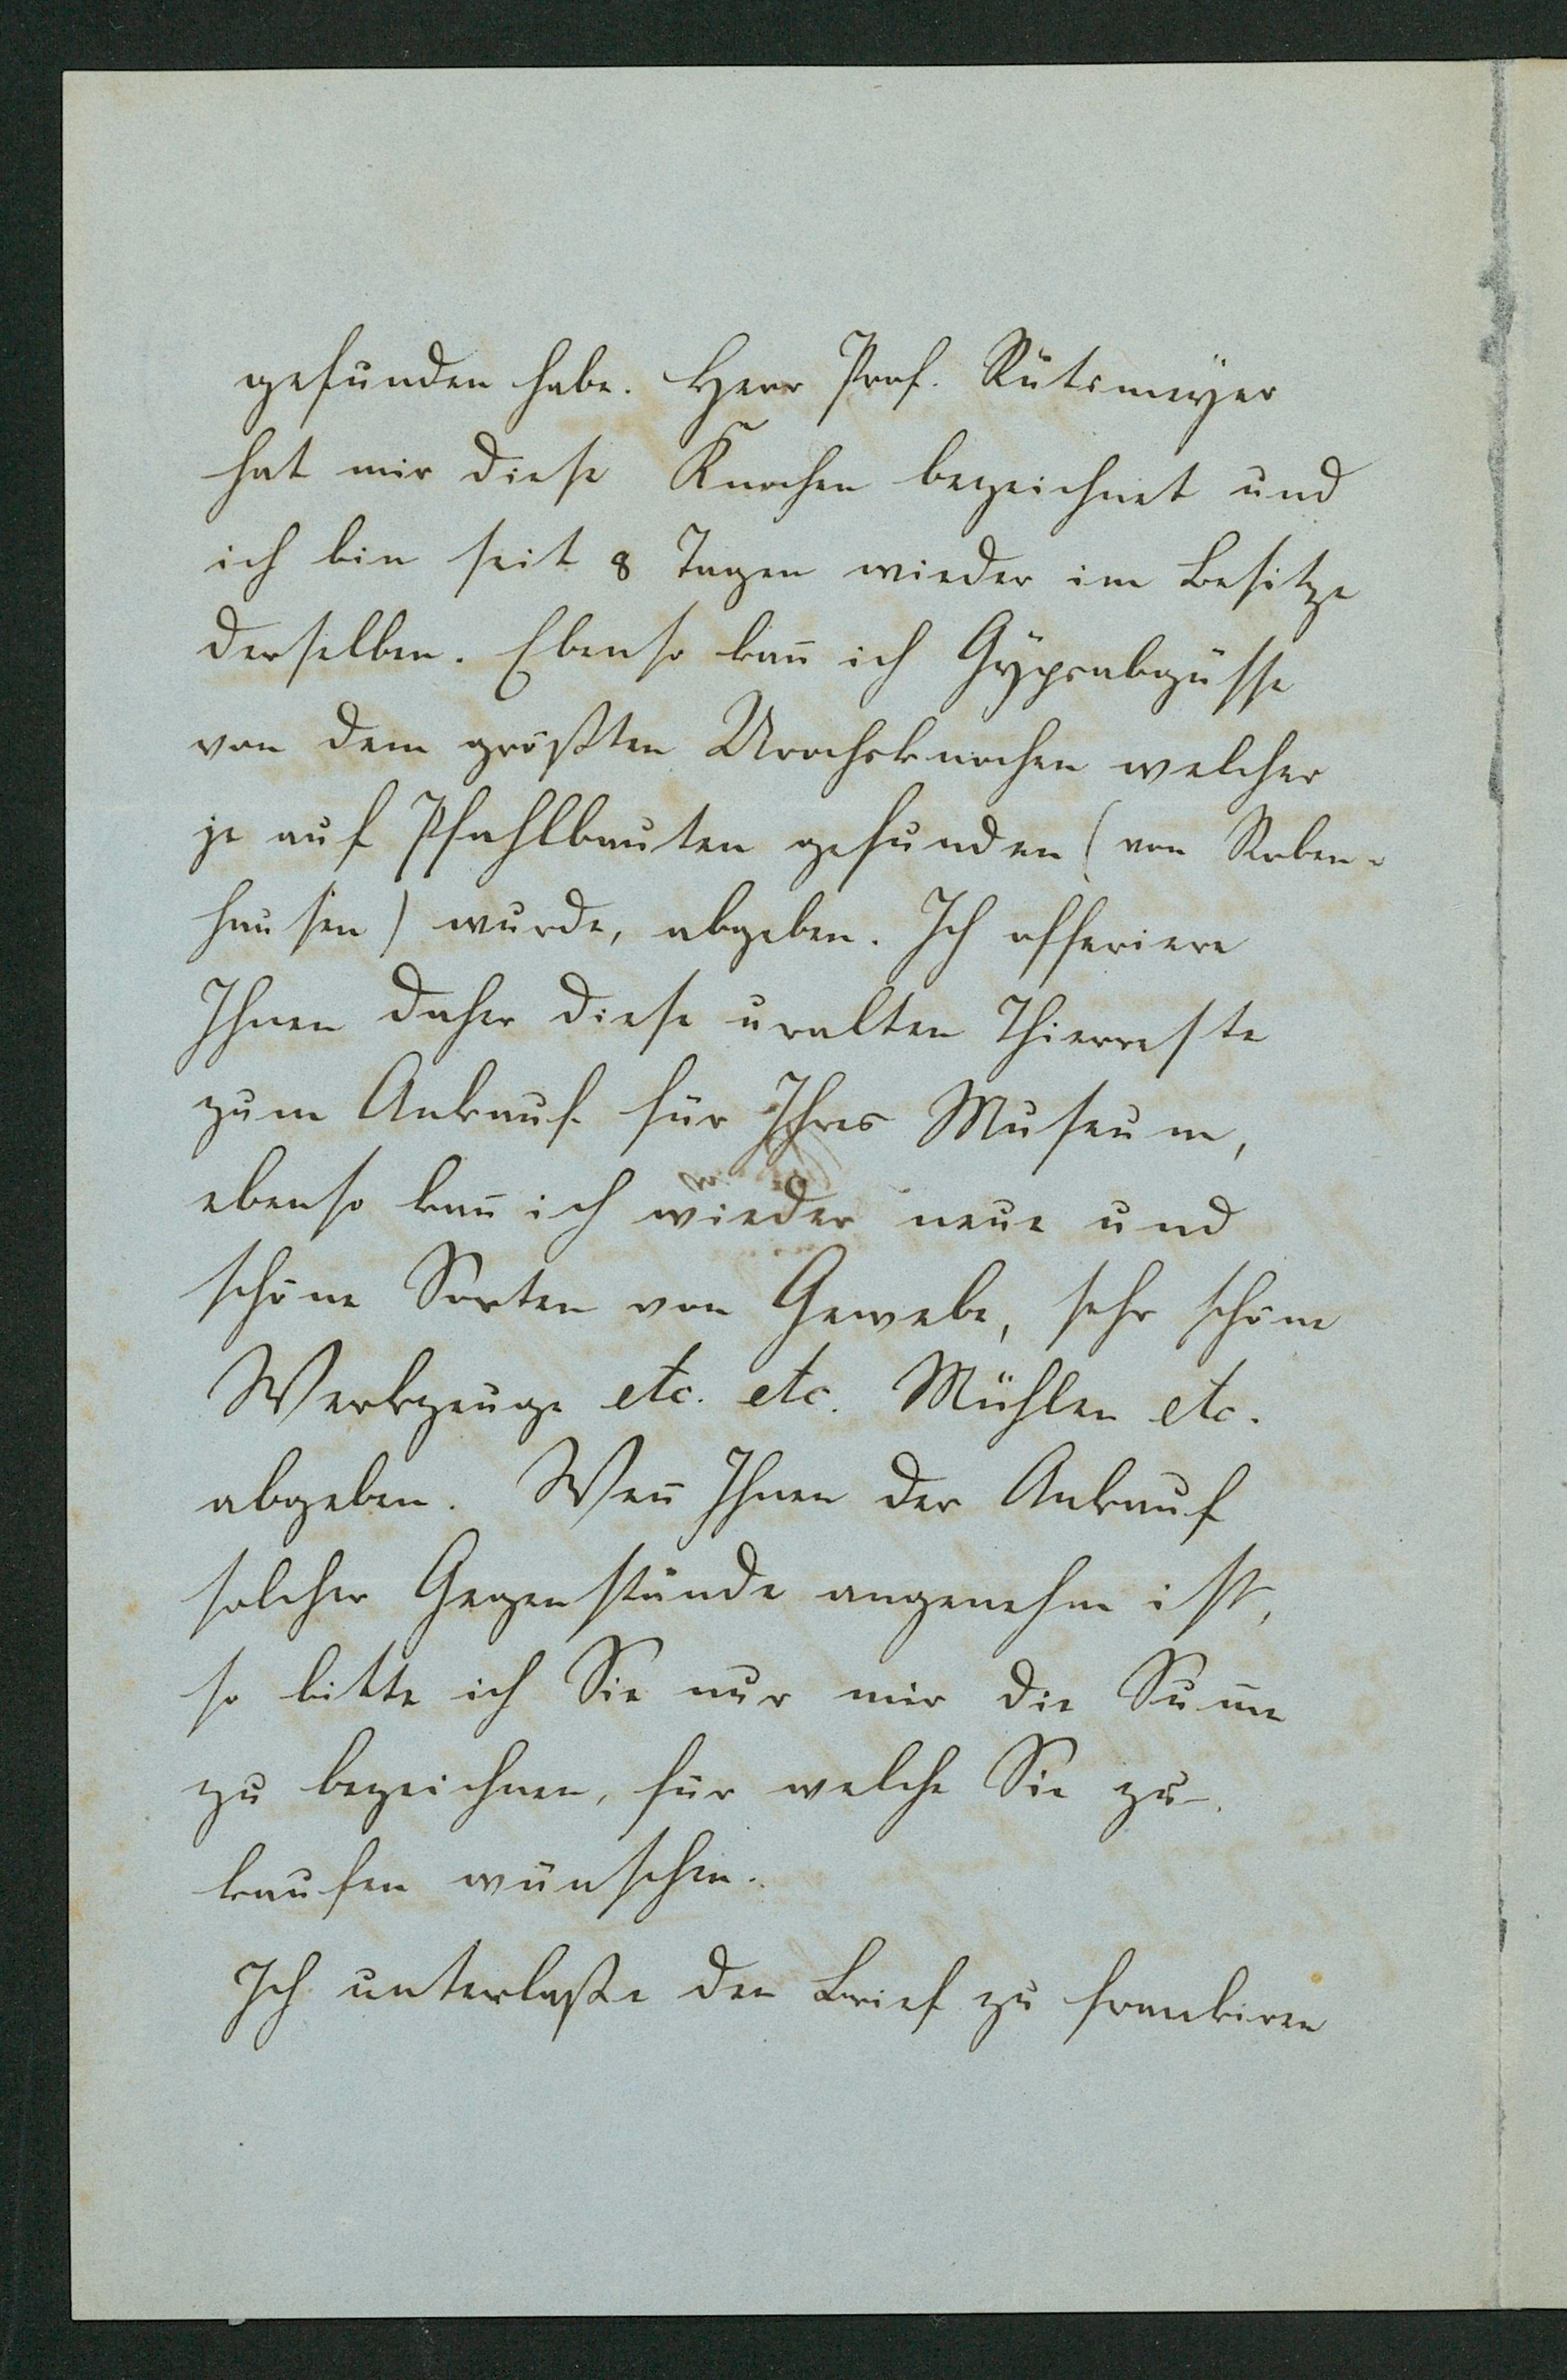 gefunden habe. Herr Prof. Rütimeÿer
hat mir diese Knochen bezeichnet und
ich bin seit 8 Tagen wieder im Besitze
derselben. Ebenso kan̄ ich Gÿpsabgüsse
von dem größten Urochsknochen welcher
je auf Pfahlbauten gefunden (von Roben-
hausen) wurde, abgeben. Ich offeriere
Ihnen daher diese uralten Thierreste
zum Ankauf für Ihres Museum,
ebenso kan̄ ich wieder neue und
schöne Sorten von Gewebe, sehr schöne
Werkzeuge etc. etc. Mühlen etc.
abgeben. Wen̄ Ihnen der Ankauf
solcher Gegenstände angenehm ist,
so bitte ich Sie nur mir die Sum̄e
zu bezeichnen, für welche Sie zu
kaufen wünschen.
Ich unterlaße den Brief zu frankiren